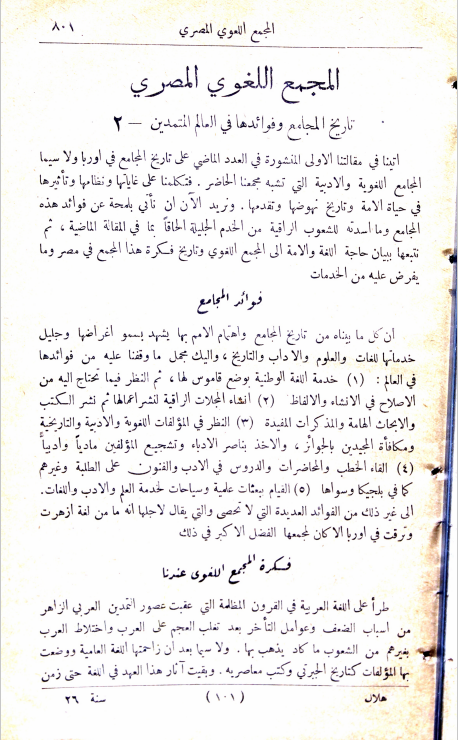 المجمع اللغوي المصري ٨٠١
المجمع اللغوي المصري
تاريخ المجامع وفوائدها في العالم المتمدين — ٢
اتينا في مقالتنا الاولى المنشورة في العدد الماضي على تاريخ المجامع في اوربا ولا سيما
المجامع اللغوية والادبية التي تشبه مجمعنا الحاضر . فتكلمنا على غاياتها ونظامها وتأثيرها
في حياة الامة وتاريخ نهوضها وتقدمها . ونريد الآن ان نأتي بلمحة عن فوائد هذه
المجامع وما اسدته للشعوب الراقية من الخدم الجليلة الحاقاً بما في المقالة الماضية ، ثم
نتبعها ببيان حاجة اللغة والامة الى المجمع اللغوي وتاريخ فكرة هذا المجمع في مصر وما
يفرض عليه من الخدمات
فوائد المجامع
أن كل ما بيناه من تاريخ المجامع واهتمام الامم بها يشهد بسمو اغراضها وجليل
خدماتها للغات والعلوم والآداب والتاريخ ، واليك مجمل ما وقفنا عليه من فوائدها
في العالم : (١) خدمة اللغة الوطنية بوضع قاموس لها ، ثم النظر فيما تحتاج اليه من
الاصلاح في الانشاء والالفاظ (٢) انشاء المجلات الراقية لنشر اعمالها ثم نشر الكتب
والابحاث الهامة والمذكرات المفيدة (٣) النظر في المؤلفات اللغوية والادبية والتاريخية
ومكافأة المجيدين بالجوائز ، والاخذ بناصر الادباء وتشجيع المؤلفين مادياً وادبياً
(٤) القاء الخطب والمحاضرات والدروس في الادب والفنون على الطلبة وغيرهم
كما في بلجيكا وسواها (٥) القيام ببعثات علمية وسياحات لخدمة العلم والادب واللغات.
الى غير ذلك من الفوائد العديدة التي لا تحصى والتي يقال لاجلها انه ما من لغة ازهرت
وترقت في اوربا الا كان لمجمعها الفضل الاكبر في ذلك
فكرة المجمع اللغوى عندنا
طرأ على اللغة العربية في القرون المظلمة التي عقبت عصور التمدين العربي الزاهر
من اسباب الضعف وعوامل التأخر بعد تغلب العجم على العرب واختلاط العرب
بغيرهم من الشعوب ما كاد يذهب بها . ولا سيما بعد أن زاحمتها اللغة العامية ووضعت
بها المؤلفات كتاريخ الجبرتي وكتب معاصريه . وبقيت آثار هذا العهد في اللغة حتى زمن
هلال (١٠١) سنة ٢٦